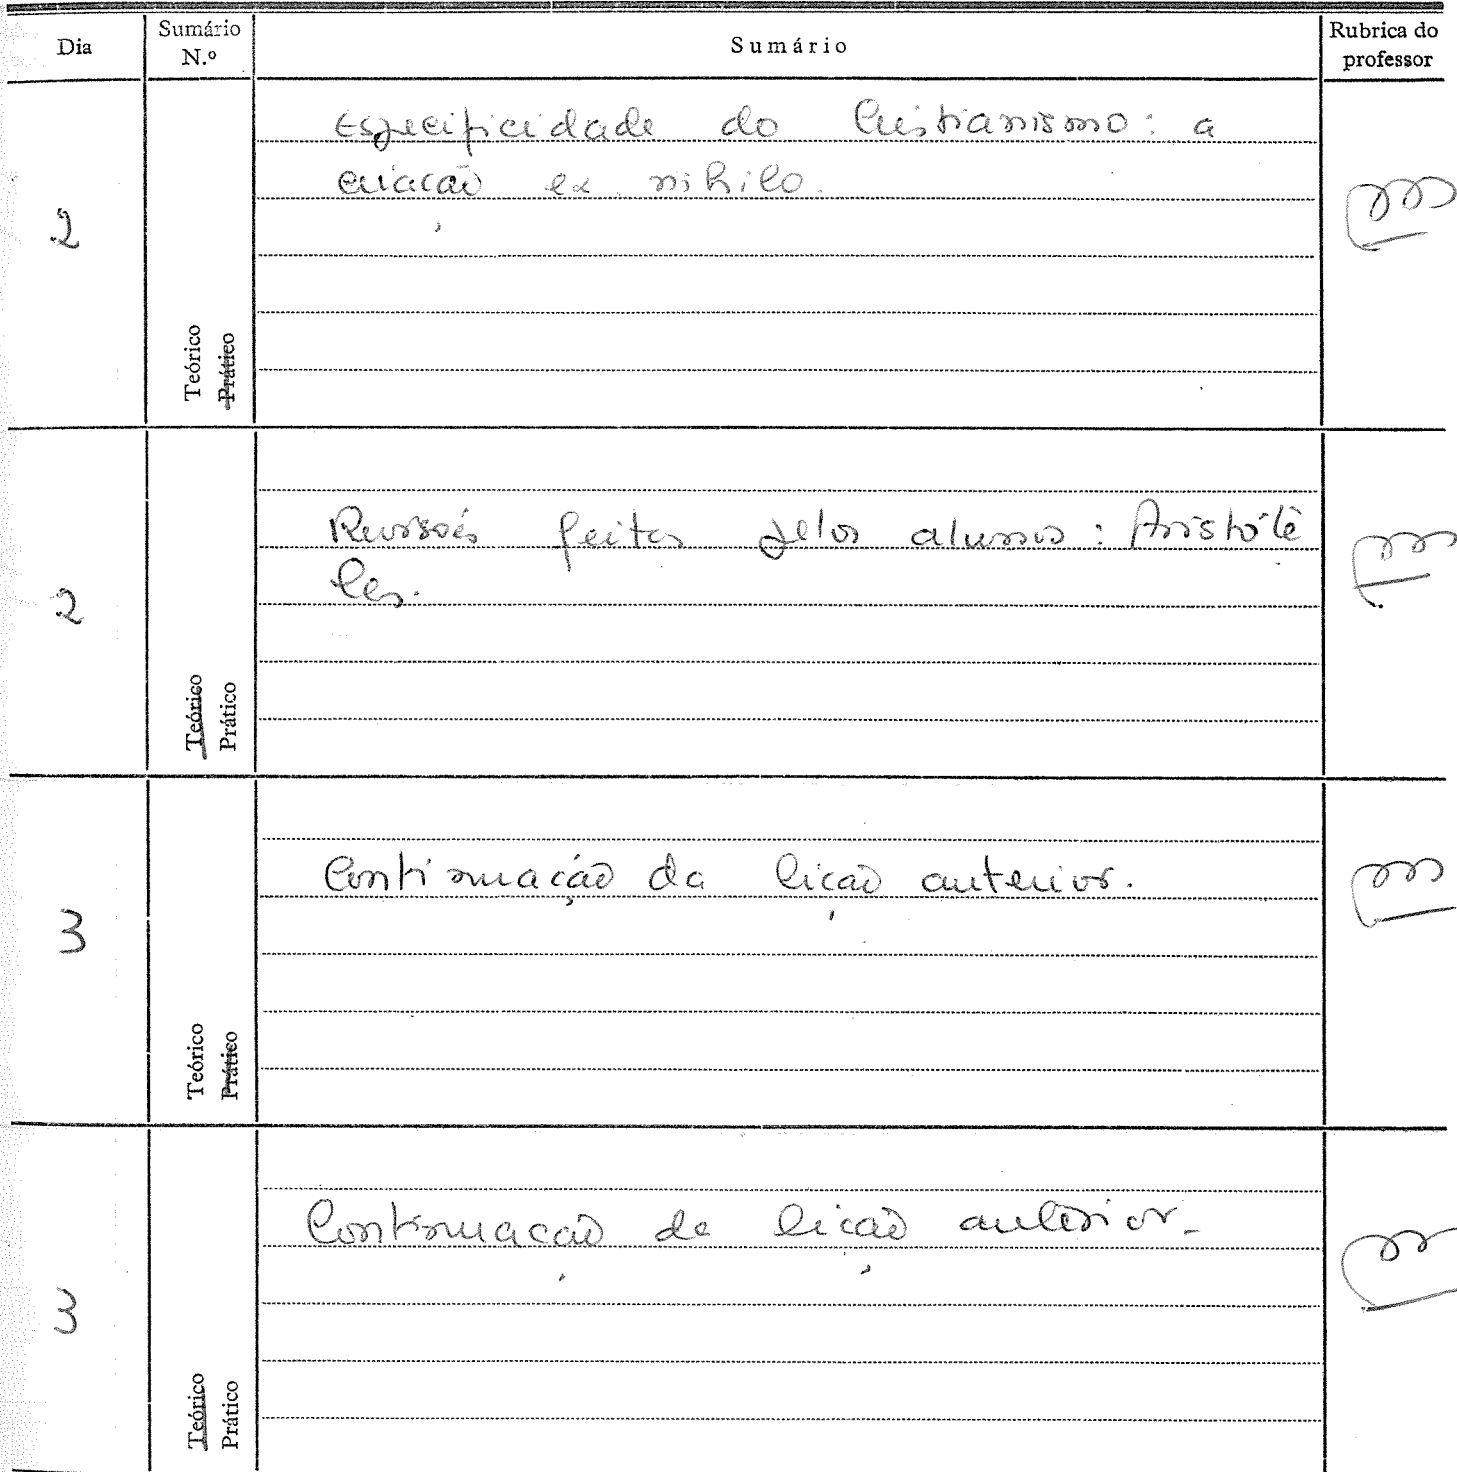 Dia Sumário N.º Sumário Rubrica do professor
2
Especificidade do Cristianismo: a
criação ex nihilo.
Teórico
Prático
2
Revisões feitas pelos alunos: Aristóte
les.
Teórico
Prático
3
Continuação da lição anterior.
Teórico
Prático
3
Continuação da lição anterior.
Teórico
Prático